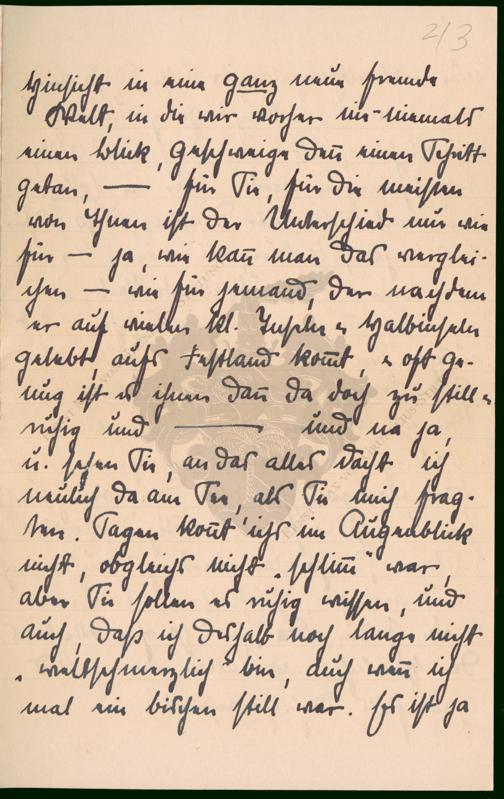 2/3
Hinsicht in eine ganz neue fremde
Welt, in die wir vorher nie-niemals
einen Blick, geschweige den̄ einen Schritt
getan, — für Sie, für die meisten
von Ihnen ist der Unterschied nur wie
für — ja, wie kan̄ man das verglei-
chen — wie für jemand, der nachdem
er auf vielen kl. Inseln u Halbinseln
gelebt, aufs Festland kom̄t, u oft ge-
nug ist es ihnen dan̄ da doch zu still u
ruhig und — und na ja,
u. sehen Sie, an das alles dacht ich
neulich da am See, als Sie mich frag-
ten. Sagen kon̄t' ichs im Augenblick
nicht, obgleichs nicht „schlim̄" war,
aber Sie sollen es ruhig wissen, und
auch, daß ich deshalb noch lange nicht
„weltschmerzlich" bin, auch wen̄ ich
mal ein bischen still war. Es ist ja